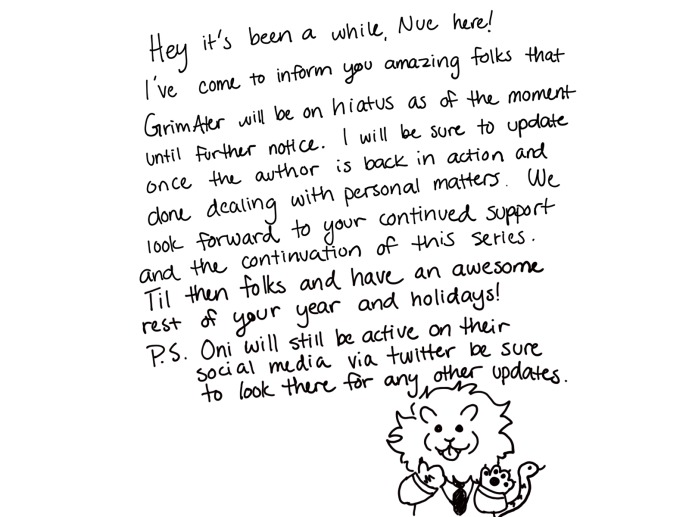 Hey it's been a while, Nue here!
I've come to inform you amazing folks that
GrimAter will be on hiatus as of the moment
until further notice. I will be sure to update
once the author is back in action and
done dealing with personal matters. We
look forward to your continued support
and the continuation of this series.
Til then folks and have an awesome
rest of your year and holidays!
P.S. Oni will still be active on their
social media via twitter be sure
to look there for any other updates.